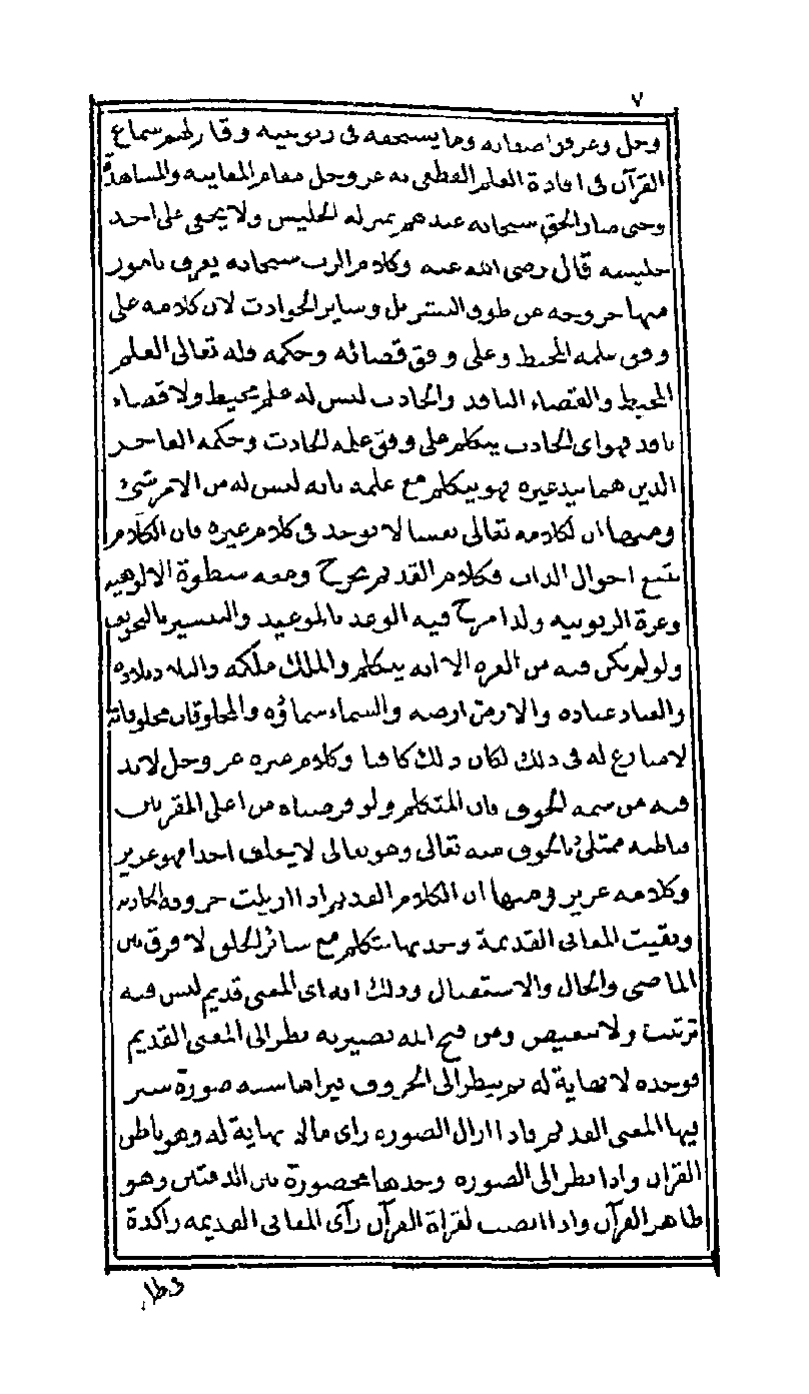 ٧
وجل وعرفوا صفاته وما يستحقه في ربوبيته وقام لهم سماع
القرآن في افادة العلم القطعي به عز وجل مقام المعاينة والمشاهدة
وحتى صار الحق سبحانه عندهم بمنزلة الجليس ولا يخفى على احد
جليسه قال رضى الله عنه وكلام الرب سبحانه يعرف بامور
منها خروجه عن طوق البشر بل وساير الحوادث لان كلامه على
وفق علمه المحيط وعلى وفق قضائه وحكمه فله تعالى العلم
المحيط والقضاء النافذ والحادث ليس له علم محيط ولا قضاء
نافذ فهو اى الحادث يتكلم على وفق علمه الحادث وحكمه العاجز
الذين هما بيد غيره فهو يتكلم مع علمه بانه ليس له من الامر شئ
ومنها ان لكلامه تعالى نفسا لا يوجد في كلام غيره فان الكلام
يتبع احوال الذات فكلام القديم يخرج ومعه سطوة الالوهية
وعزة الربوبية ولذا مزج فيه الوعد بالوعيد والتبشير بالتخويف
ولو لم يكن فيه من العزة الا انه يتكلم والملك ملكه والبلاد بلاده
والعباد عباده والارض ارضه والسماء سماؤه والمخلوقات مخلوقاته
لا منازع له في ذلك لكان ذلك كافيا وكلام غيره عز وجل لابد
فيه من سمة الخوف فان المتكلم ولو فرضناه من اعلى المقربين
باطنه ممتلئ بالخوف منه تعالى وهو تعالى لا يخاف احدا فهو عزيز
وكلامه عزيز ومنها ان الكلام القديم اذا ازيلت حروفه الحادثة
وبقيت المعاني القديمة وجدتها تتكلم مع سائر الخلق لا فرق بين
الماضي والحال والاستقبال وذلك انه اى المعنى قديم ليس فيه
ترتيب ولا تبعيض ومن فتح الله بصيرته نظر الى المعنى القديم
فوجده لا نهاية له ثم ينظر الى الحروف فيراها شبه صورة ستر
فيها المعنى القديم فاذا ازال الصورة راى مالا نهاية له وهو باطن
القرآن واذا نظر الى الصورة وجدها محصورة بين الدفتين وهو
ظاهر القرآن واذا انصت لقراة القرآن رآى المعاني القديمة راكدة